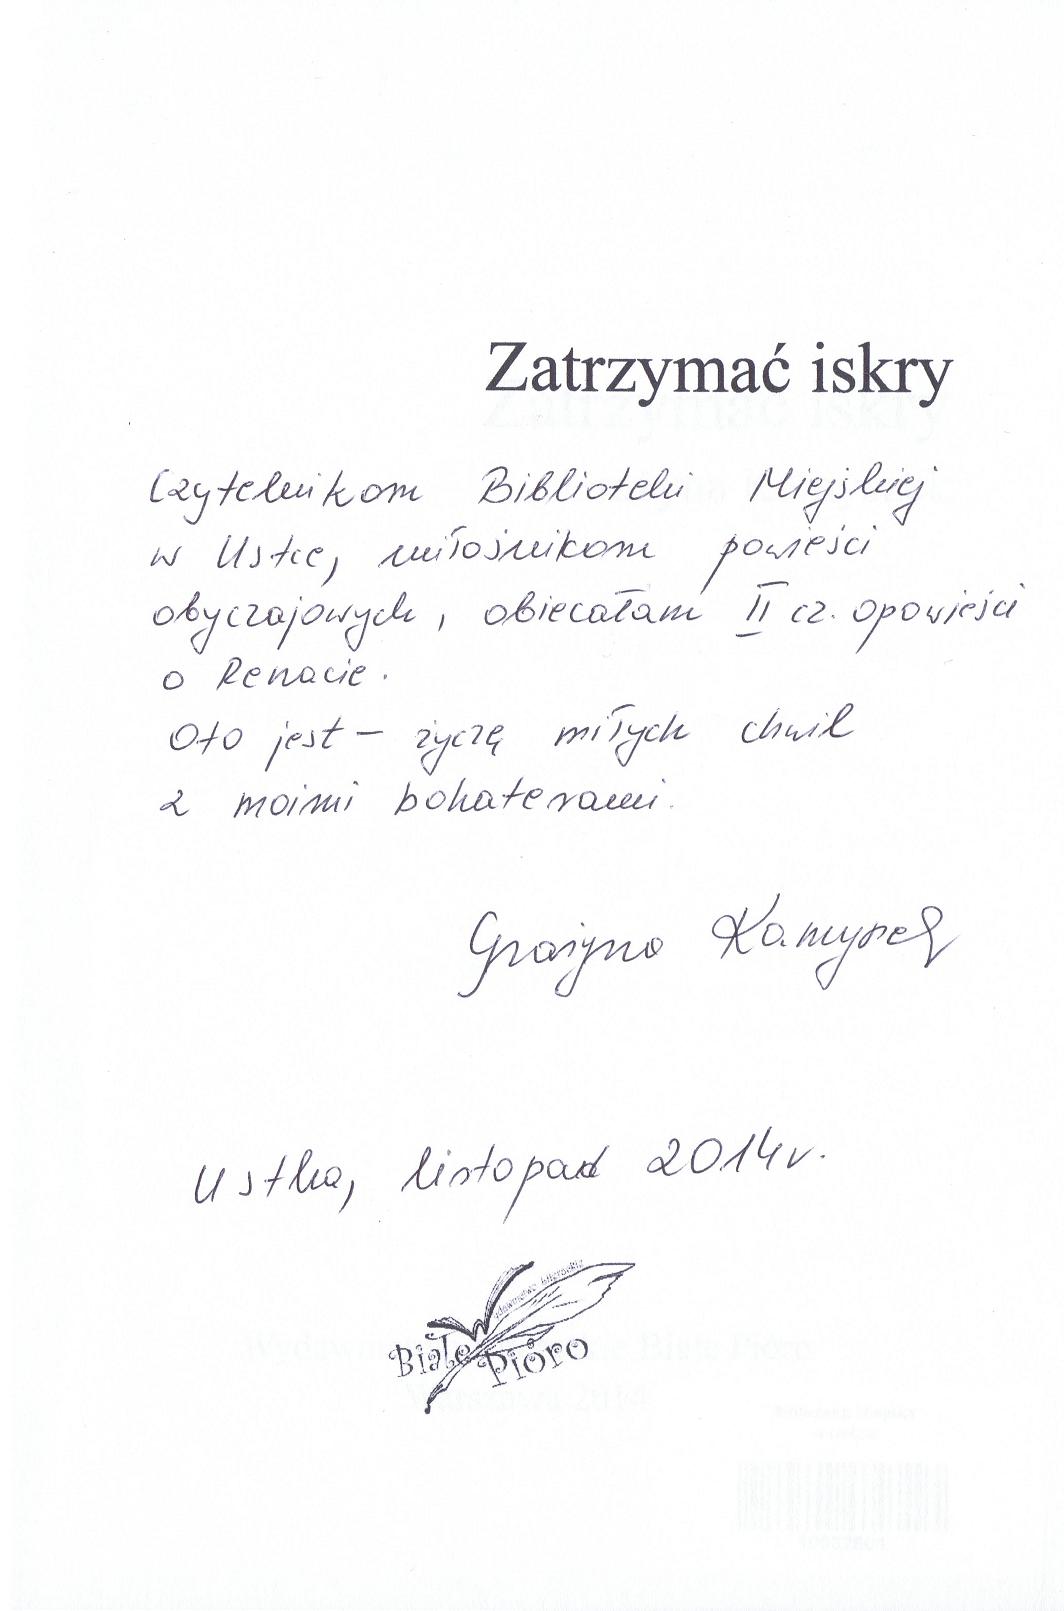 Zatrzymać iskry
Czytelnikom Biblioteki Miejskiej
w Ustce, miłośnikom powieści
obyczajowych, obiecałam II cz. opowieści
o Renacie.
Oto jest – życzę miłych chwil
z moimi bohaterami.
Grażyna Kamyszek
Ustka, listopad 2014 r.
wydawnictwo literackie
Białe Pióro
Białe Pióro
Warszawa 2014